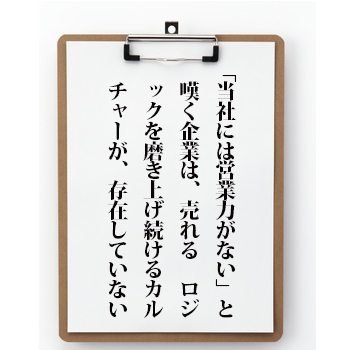 「当社には営業力がない」と
嘆く企業は、売れる　ロジ
ックを磨き上げ続けるカル
チャーが、存在していない